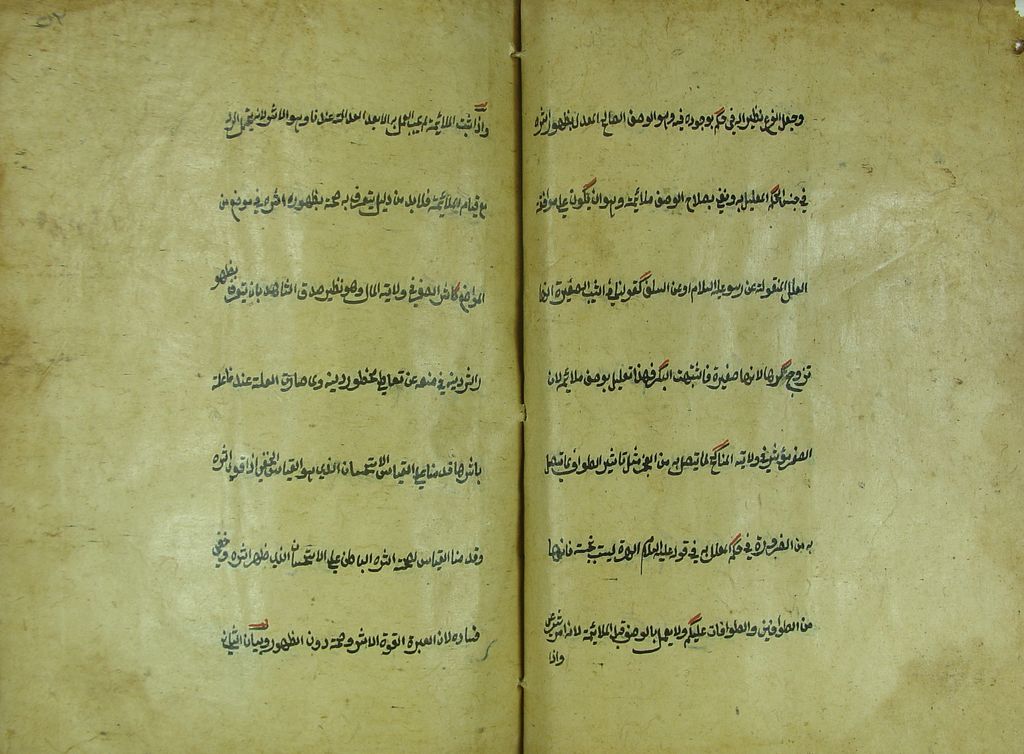 وجعل الفرع نظيرا له في حكمه بوجوده فيه وهو الوصف الصالح المعدل بظهور اثره
في جنس الحكم المعلل به ونعني بصلاح الوصف ملائمته وهو ان يكون على موافقة
العلل المنقولة عن رسول عليه السلام وعن السلف كقولنا في الثيب الصغيرة انها
تزوج كرها لانها صغيرة فاشبهت البكر فهذا تعليل بوصف ملائم لان
الصغر مؤثر في ولاية المناكح لما يتصل به من العجز مثل تاثير الطواف لما يتصل
به من الضرورة في الحكم المعلل به في قوله عليه السلام الهرة ليست بنجسة فانها
من الطوافين والطوافات عليكم ولا يعمل بالوصف قبل الملائمة لانه امر شرعي
واذا
واذا ثبت الملائمة لم يجب العمل به الا بعد العدالة عندنا وهو الاثر لانه يحتمل الرد
مع قيام الملائمة فلا بد من دليل يتعرف به صحته بظهور اثره في موضع من
المواضع كاثر الصغر في ولاية المال وهو نظير صدق الشاهد بانه يتعرف بظهور
اثر دينه في منعه عن تعاطي محظور دينه ولما صارت العلة عندنا علة
باثرها قدمنا على القياس الاستحسان الذي هو القياس الخفي اذا قوي اثره
وقدمنا القياس لصحة اثره الباطن على الاستحسان الذي ظهر اثره وخفي
فساده لان العبرة لقوة الاثر وصحته دون الظهور وبيان الثاني